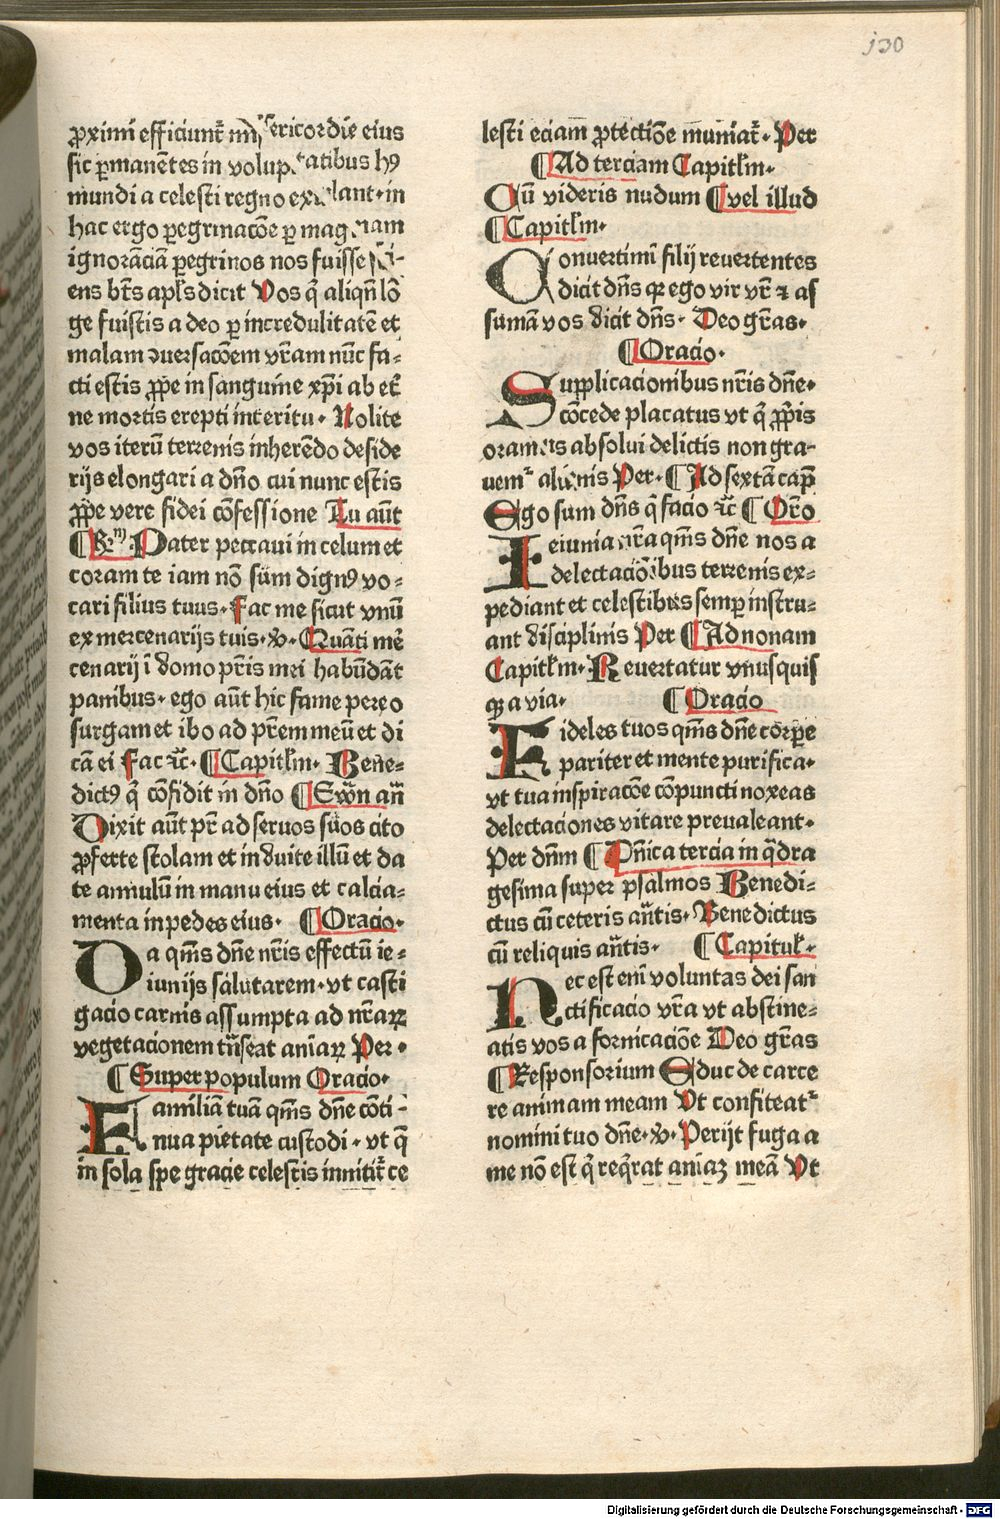 130
ꝓximi efficiunt᷑ miſericordie eius
ſic ꝑmanētes in voluptatibus hꝰ
mundi a celeſti regno exulant · in
hac ergo ꝑegrinacōe ꝑ magnam
ignorāciā ꝑegrinos nos fuiſſe ſci-
ens bt̄s apl̄s dicit Vos q̄ aliqn̄ lō
ge fuiſtis a deo ꝑ incredulitatē et
malam ꝯuerſacōem vr̄am nūc fa-
cti eſtis ꝓꝑe in ſanguine xp̄i ab et̄
ne mortis erepti interitu · Nolite
vos iterū terrenis inherēdo deſide
rijs elongari a dn̄o cui nunc eſtis
ꝓꝑe vere fidei cōfeſſione Tu aūt
¶ R̄ Pater peccaui in celum et
coram te iam nō ſum dignꝰ vo-
cari filius tuus · Fac me ſicut vnū
ex mercenarijs tuis · v̄ · Quāti mẽ
cenarij ī domo pr̄is mei habūdāt
panibus · ego aūt hic fame pereo
ſurgam et ibo ad pr̄em meū et di
cā ei Fac ꝛc̄ · ¶ Capitl̄m · Bene-
dictꝰ q̄ cōfidit in dn̄o ¶ Sup̄ an̄
Dixit aūt pr̄ ad ſeruos ſuos cito
ꝓferte ſtolam et induite illū et da
te annulū in manu eius et calcia-
menta in pedes eius · ¶ Oracio ·
Da qm̄s dn̄e nr̄is effectū ie-
iunijs ſalutarem · vt caſti
gacio carnis aſſumpta ad nr̄aꝝ
vegetacionem trn̄ſeat aniaꝝ Per ·
¶ Super populum Oracio ·
Familiā tuā qm̄s dn̄e cōti-
nua pietate cuſtodi · vt q̄
in ſola ſpe gracie celeſtis innitit᷑ ce
leſti eciam ꝓtectiōe muniat᷑ · Per
¶ Ad terciam Capitl̄m ·
Cū videris nudum ¶ vel illud
¶ Capitl̄m ·
Conuertimī filij reuertentes
dicit dn̄s qꝛ ego vir vr̄ ⁊ aſ
ſumā vos dicit dn̄s · Deo gr̄as ·
¶ Oracio ·
Supplicacionibus nr̄is dn̄e ·
cōcede placatus vt q̄ ꝓp̄is
oramus abſolui delictis non gra-
uem᷑ alienis Per · ¶ Ad ſextā cap̄
Ego ſum dn̄s q̄ facio ꝛc̄ ¶ Or̄o
Ieiunia nr̄a qm̄s dn̄e nos a
delectaciōibus terrenis ex-
pediant et celeſtibus ſemꝑ inſtru-
ant diſciplinis Per ¶ Ad nonam
Capitl̄m · Reuertatur vnuſquiſ
qꝫ a via · ¶ Oracio
Fideles tuos qm̄s dn̄e corꝑe
pariter et mente purifica ·
vt tua inſpiracōe cōpuncti noxeas
delectaciones vitare preualeant ·
Per dn̄m ¶ Dn̄ica tercia in q̄dra
geſima ſuper pſalmos Benedi-
ctus cū ceteris an̄tis · Benedictus
cū reliquis an̄tis · ¶ Capitul̄ ·
Nec eſt enī voluntas dei ſan
ctificacio vr̄a vt abſtine-
atis vos a fornicaciōe Deo gr̄as
¶ Reſponſorium Educ de carce
re animam meam Vt confiteat᷑
nomini tuo dn̄e · v̄ · Perijt fuga a
me nō eſt q̄ req̄rat aniaꝫ meā Vt
Digitalisierung gefördert durch die Deutsche Forschungsgemeinschaft - DFG